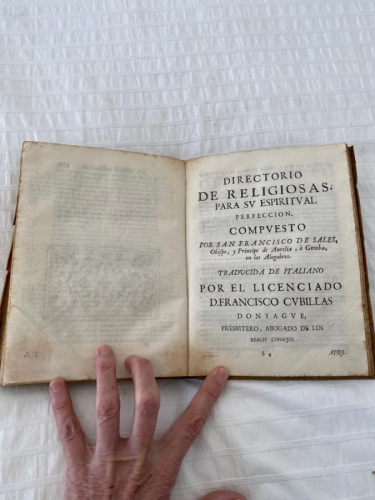 DIRECTORIO
DE RELIGIOSAS,
PARA SV ESPIRITVAL
PERFECCION.
COMPVESTO
POR SAN FRANCISCO DE SALES,
Obispo, y Principe de Aurelia, ò Geneba,
en los Alogobres.
TRADUCIDA DE ITALIANO
POR EL LICENCIADO
D.FRANCISCO CVBILLAS
DONYAGVE,
PRESBITERO, ABOGADO DE LOS
REALES CONSEJOS.
APRO-